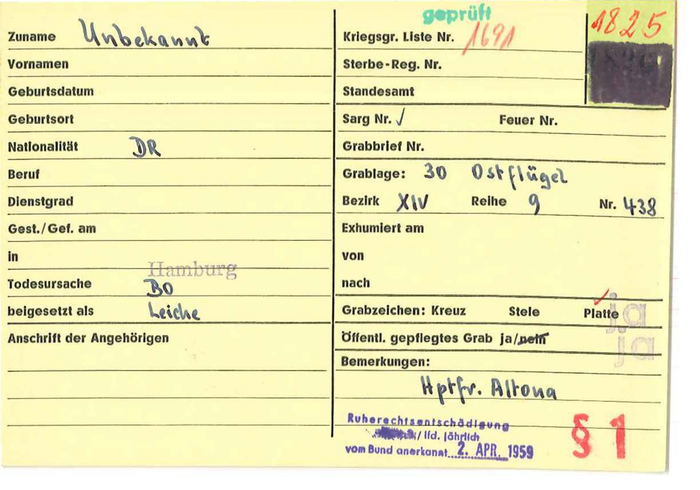 Zuname Unbekannt
Vornamen
Geburtsdatum
Geburtsort
Nationalität DR
Beruf
Dienstgrad
Gest./Gef. am
in Hamburg
Todesursache BO
beigesetzt als Leiche
Anschrift der Angehörigen
geprüft
1825
Kriegsgr. Liste Nr. 1691
Sterbe-Reg. Nr.
Standesamt
Sarg Nr. √ Feuer Nr.
Grabbrief Nr.
Grablage: 30 Ostflügel
Bezirk XIV Reihe 9 Nr. 438
Exhumiert am
von
nach
Grabzeichen: Kreuz Stele Platte ja
Öffentl. gepflegtes Grab ja/nein ja
Bemerkungen:
Hptfr. Altona
Ruherechtsentschädigung
/ lfd. jährlich
vom Bund anerkannt 2. APR. 1959
§ 1